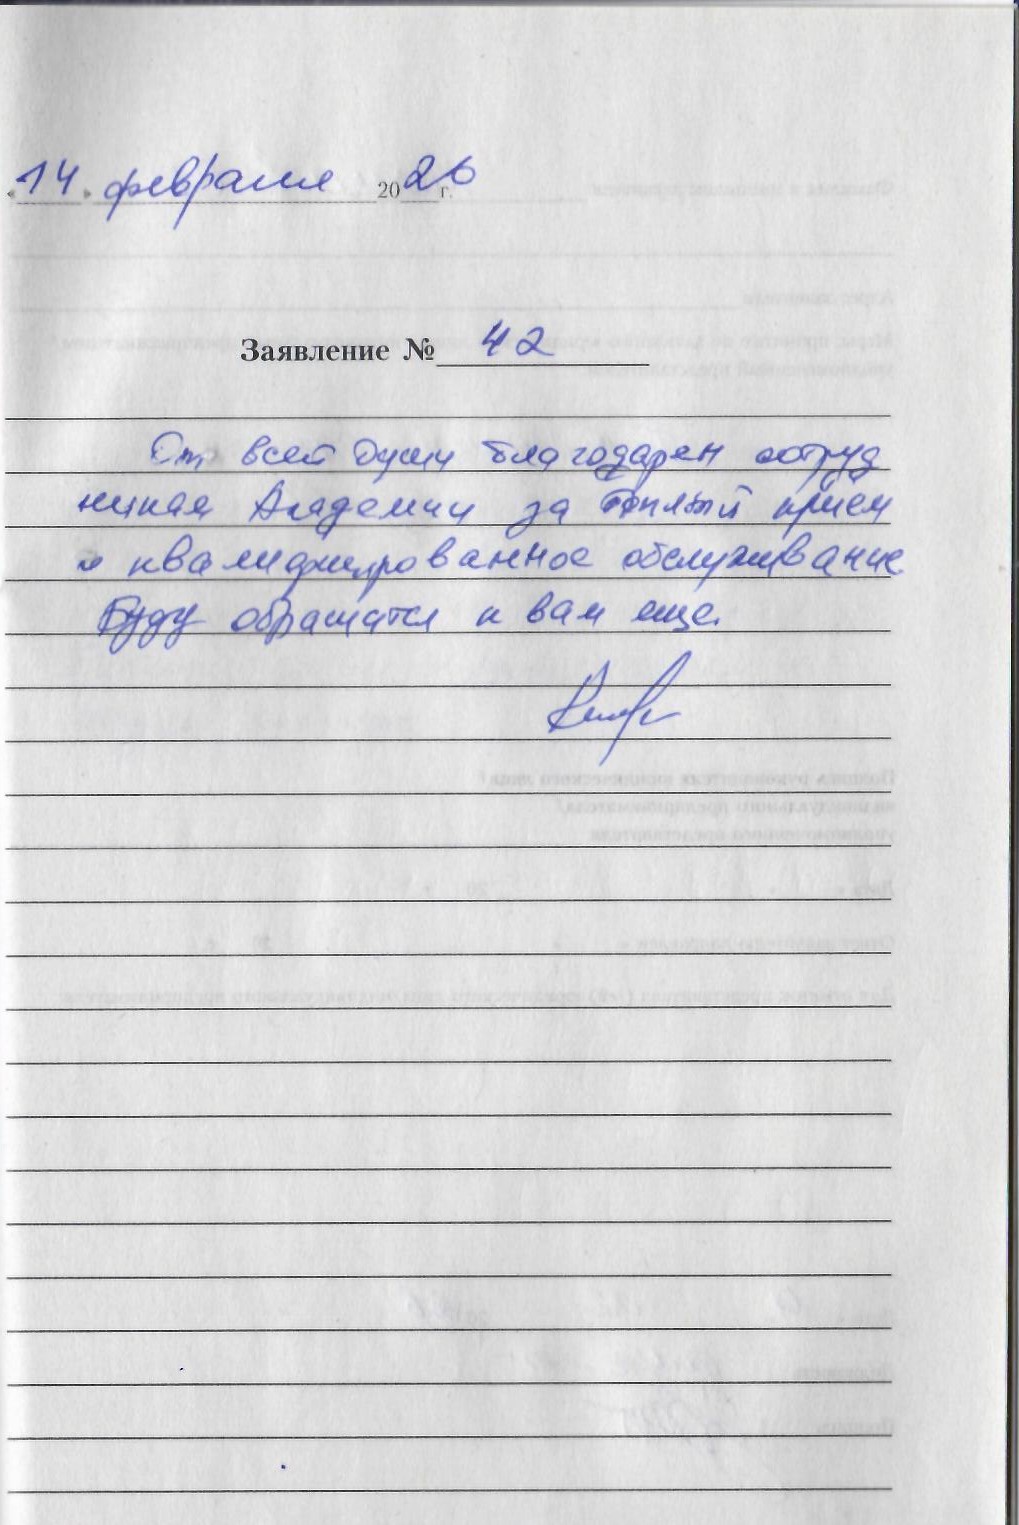 «14» февраля 2026 г.
Заявление № 42
От всей души благодарен сотруд
никам Академии за тёплый приём
и квалифицированное обслуживание
Буду обращатся к вам еще.